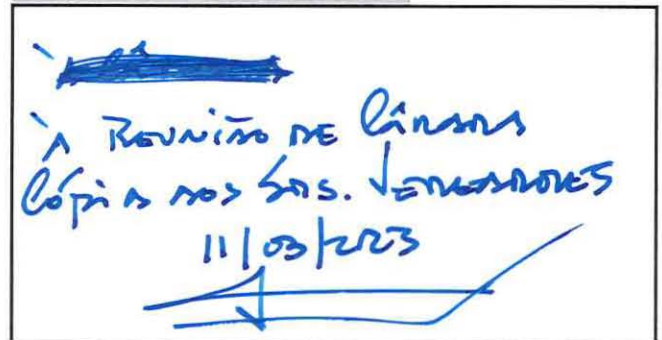 À REUNIÃO DE CÂMARA
CÓPIA AOS SRS. VEREADORES
11/03/2023